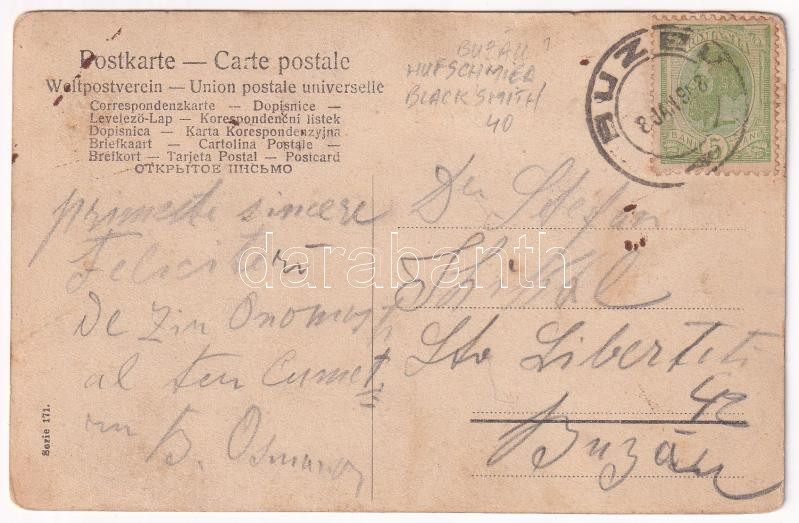 Postkarte — Carte postale
Weltpostverein — Union postale universelle
Correspondenzkarte — Dopisnice —
Levelező-Lap — Korespondenční listek
Dopisnica — Karta Korespondenzyjna
Briefkaart — Cartolina Postale —
Brefkort — Tarjeta Postal — Postcard
ОТКРЫТОЕ ПИСЬМО
BUZĂU ?
HUFSCHMIED
BLACKSMITH
40
ROMANIA
BUZEU
8 JAN 908
BANI 5 BANI
primește sincere
Felicitări
de Ziu Onomast
al teu Cumet
B.
Du Stefan
Str Libertăți
42
Buzău
Serie 171.
darabanth